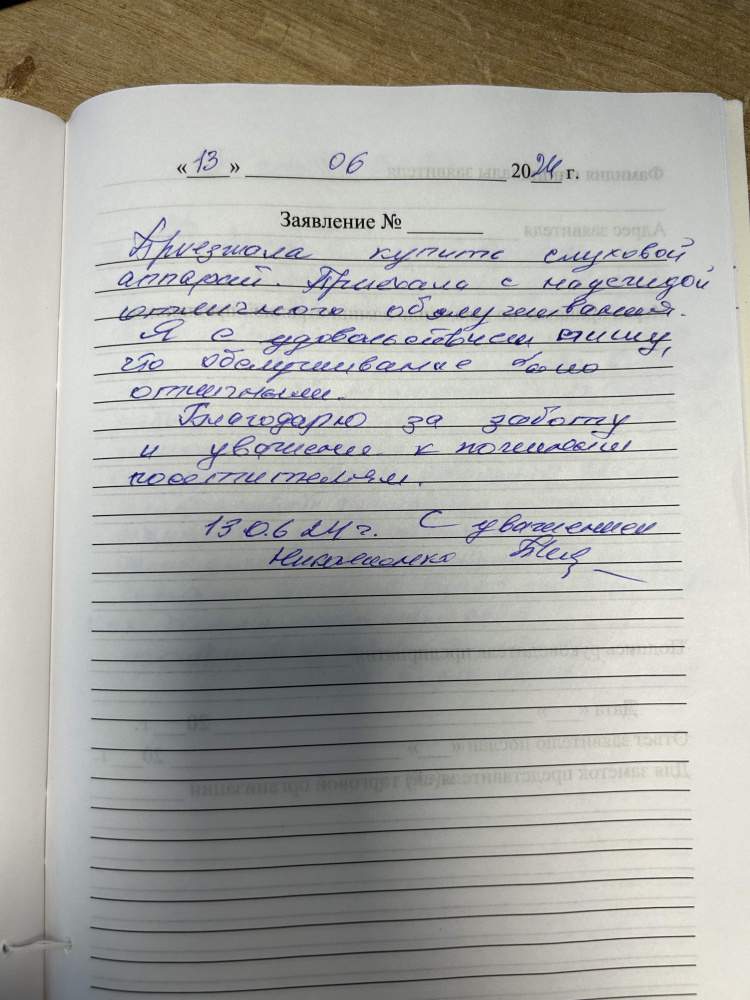 «13» 06 2024 г.
Заявление №
Приезжала купить слуховой
аппарат. Приехала с надеждой
отличного обслуживания.
Я с удовольствием пишу,
что обслуживание было
отличным.
Благодарю за заботу
и уважение к пожилым
посетителям.
13 0.6 24 г. С уважением